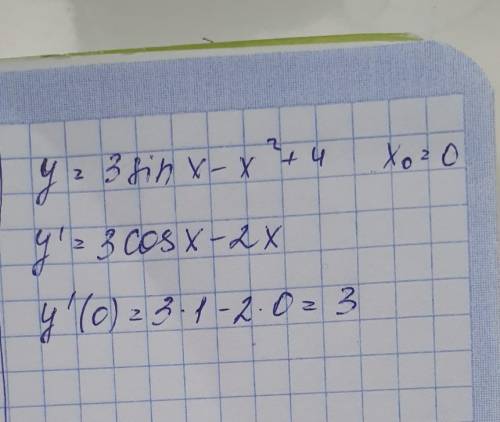 y = 3 sin x - x² + 4    x₀ = 0
y' = 3 cos x - 2x
y'(0) = 3·1 - 2·0 = 3